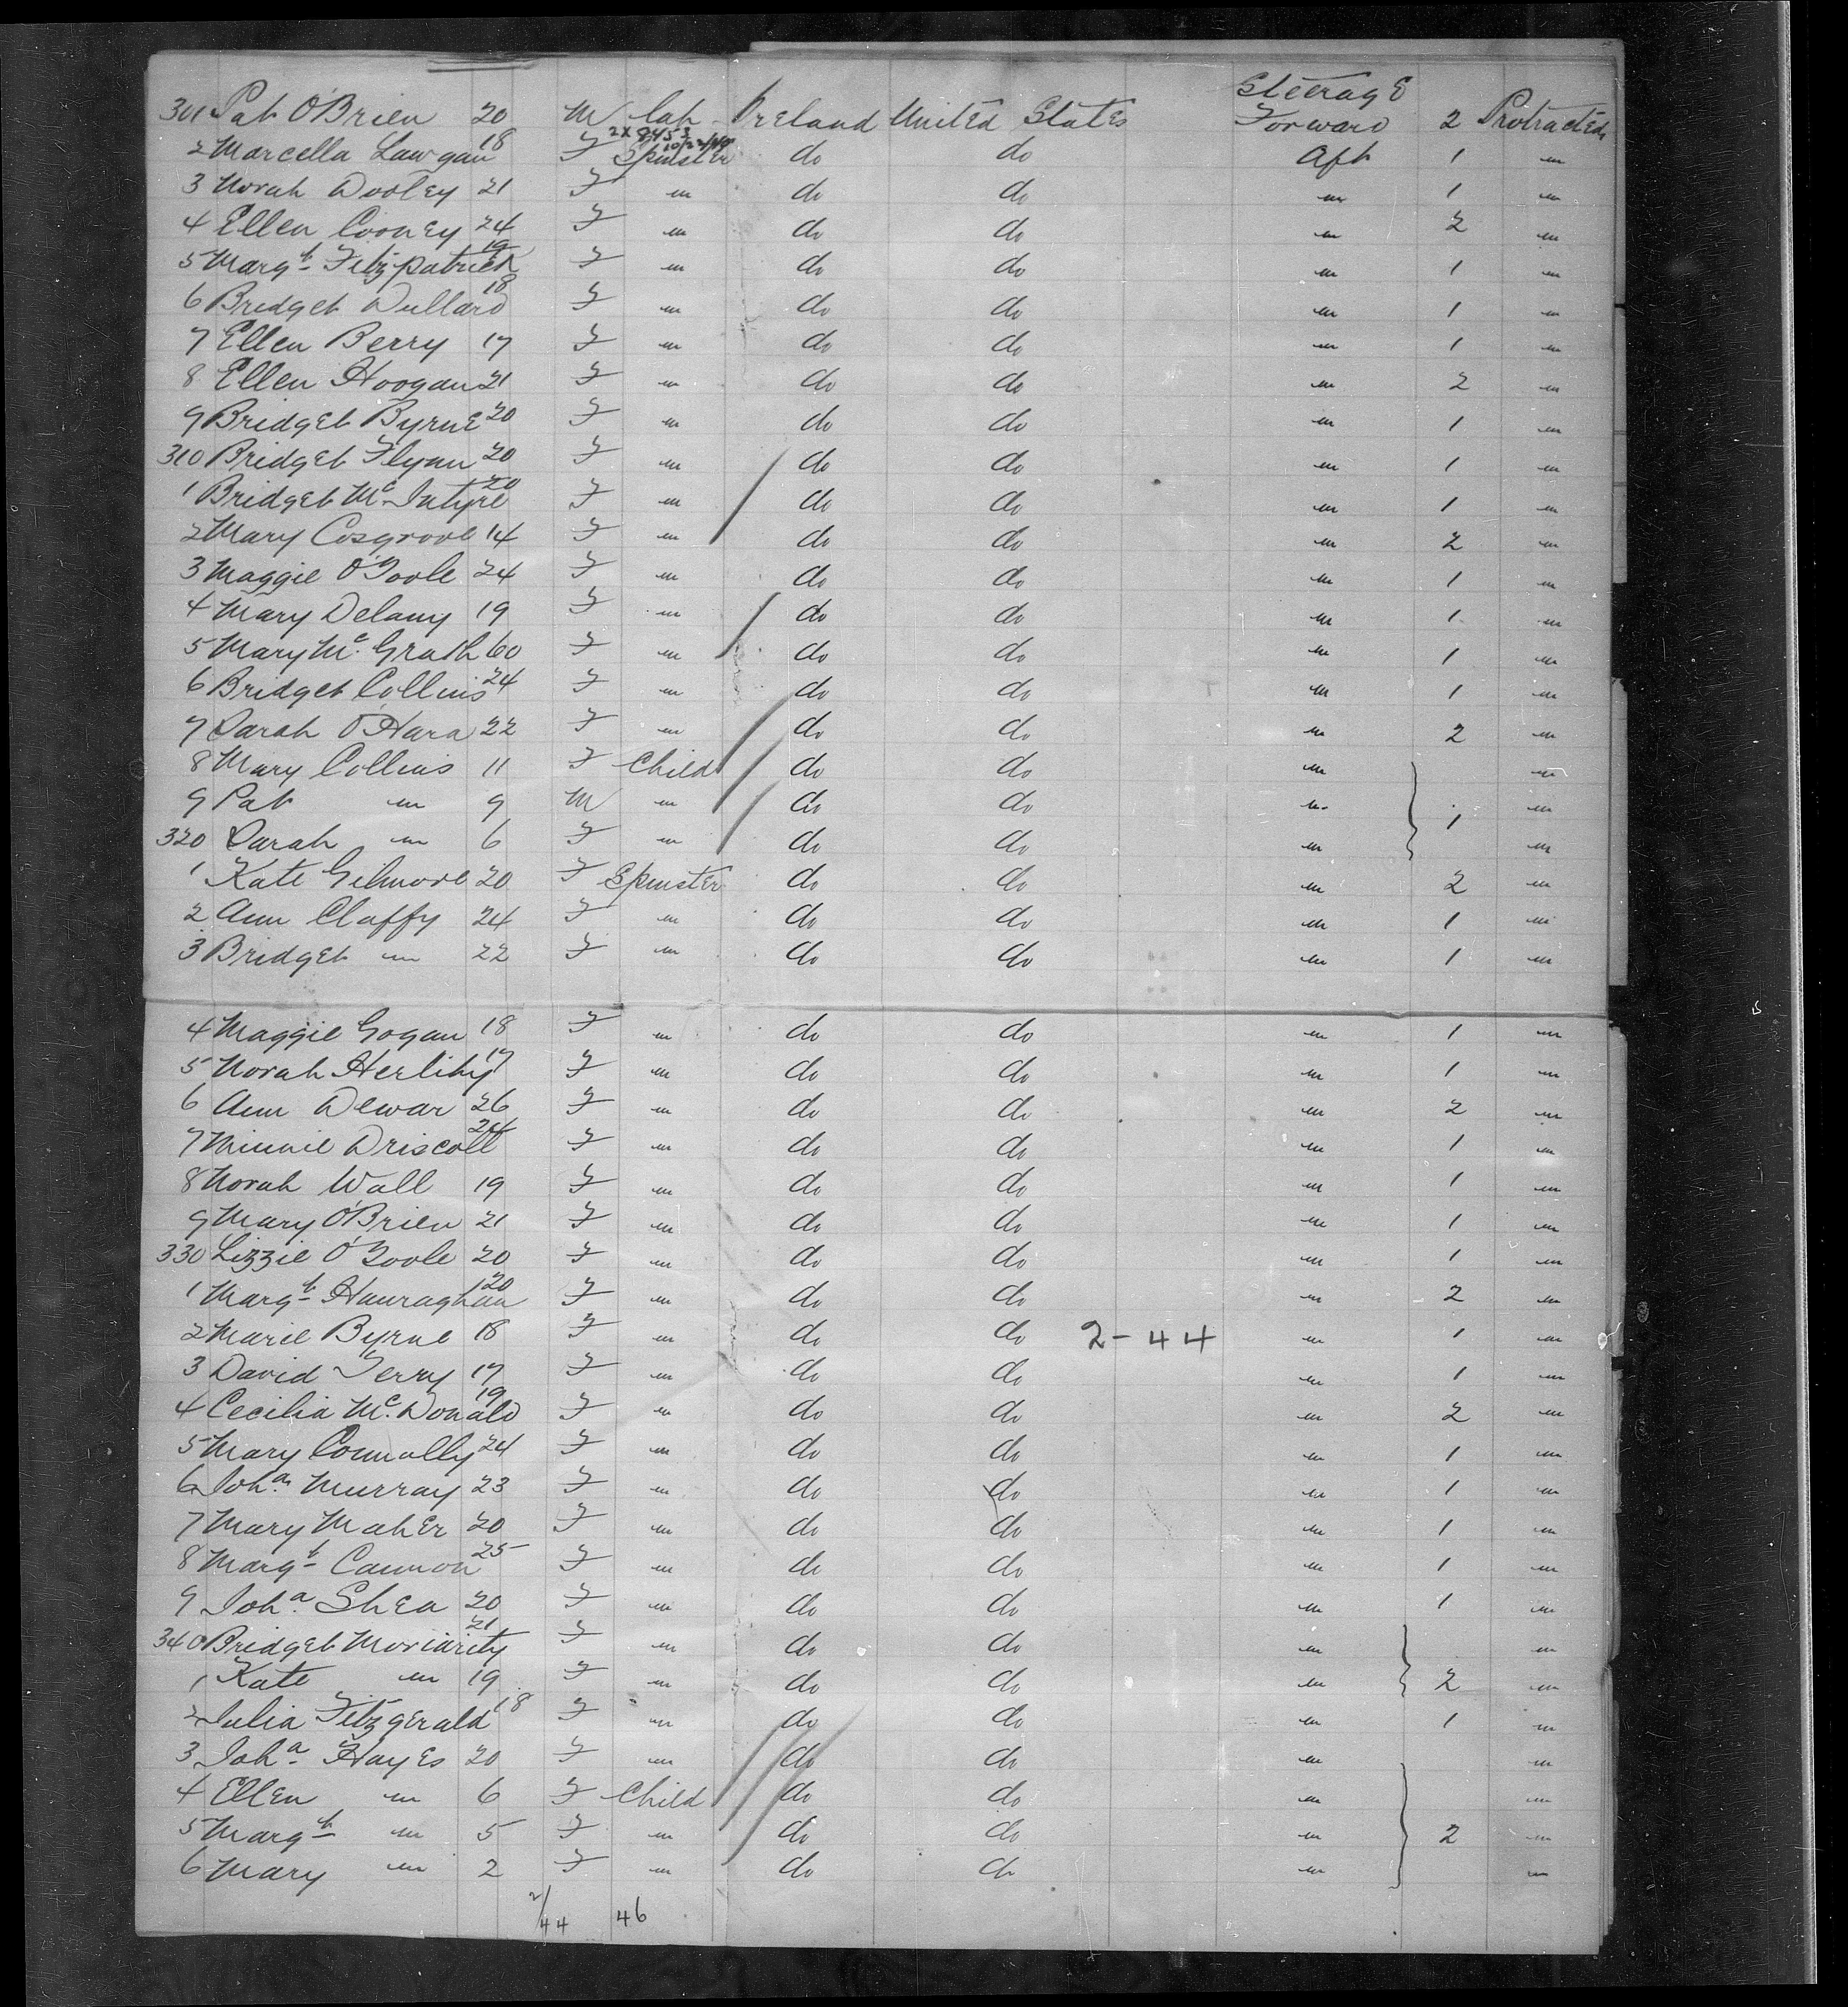 Steerage
301 Pat O'Brien 20 M Lab Ireland United States Forward 2 Protracted
2X 9453
10/22/40
2 Marcella Lawgan 18 F Spinster do do Aft 1 "
3 Norah Dooley 21 F " do do " 1 "
4 Ellen Cooney 24 F " do do " 2 "
5 Margt Fitzpatrick 19 F " do do " 1 "
6 Bridget Dullard 18 F " do do " 1 "
7 Ellen Berry 17 F " do do " 1 "
8 Ellen Hoogan 21 F " do do " 2 "
9 Bridget Byrne 20 F " do do " 1 "
310 Bridget Flynn 20 F " do do " 1 "
1 Bridget McIntyre 20 F " do do " 1 "
2 Mary Cosgrove 14 F " do do " 2 "
3 Maggie O'Toole 24 F " do do " 1 "
4 Mary Delany 19 F " do do " 1 "
5 Mary Mc.Grath 60 F " do do " 1 "
6 Bridget Collins 24 F " do do " 1 "
7 Sarah O'Hara 22 F " do do " 2 "
8 Mary Collins 11 F Child do do " "
9 Pat " 9 M " do do " 1 "
320 Sarah " 6 F " do do " "
1 Kate Gilmore 20 F Spinster do do " 2 "
2 Ann Claffy 24 F " do do " 1 "
3 Bridget " 22 F " do do " 1 "
4 Maggie Gogan 18 F " do do " 1 "
5 Norah Herlihy 17 F " do do " 1 "
6 Ann Dewar 26 F " do do " 2 "
7 Minnie Driscoll 24 F " do do " 1 "
8 Norah Wall 19 F " do do " 1 "
9 Mary O'Brien 21 F " do do " 1 "
330 Lizzie O'Toole 20 F " do do " 1 "
1 Margt Hanraghan 20 F " do do " 2 "
2 Marie Byrne 18 F " do do 2-44 " 1 "
3 David Terry 17 F " do do " 1 "
4 Cecilia Mc.Donald 19 F " do do " 2 "
5 Mary Connolly 24 F " do do " 1 "
6 Joha Murray 23 F " do do " 1 "
7 Mary Maher 20 F " do do " 1 "
8 Margt Cannon 25 F " do do " 1 "
9 Joha Shea 20 F " do do " 1 "
340 Bridget Moriarity 21 F " do do " "
1 Kate " 19 F " do do " 2 "
2 Julia Fitzgerald 18 F " do do " 1 "
3 Joha Hayes 20 F " do do " "
4 Ellen " 6 F Child do do " "
5 Margt " 5 F " do do " 2 "
6 Mary " 2 F " do do " "
2/44 46